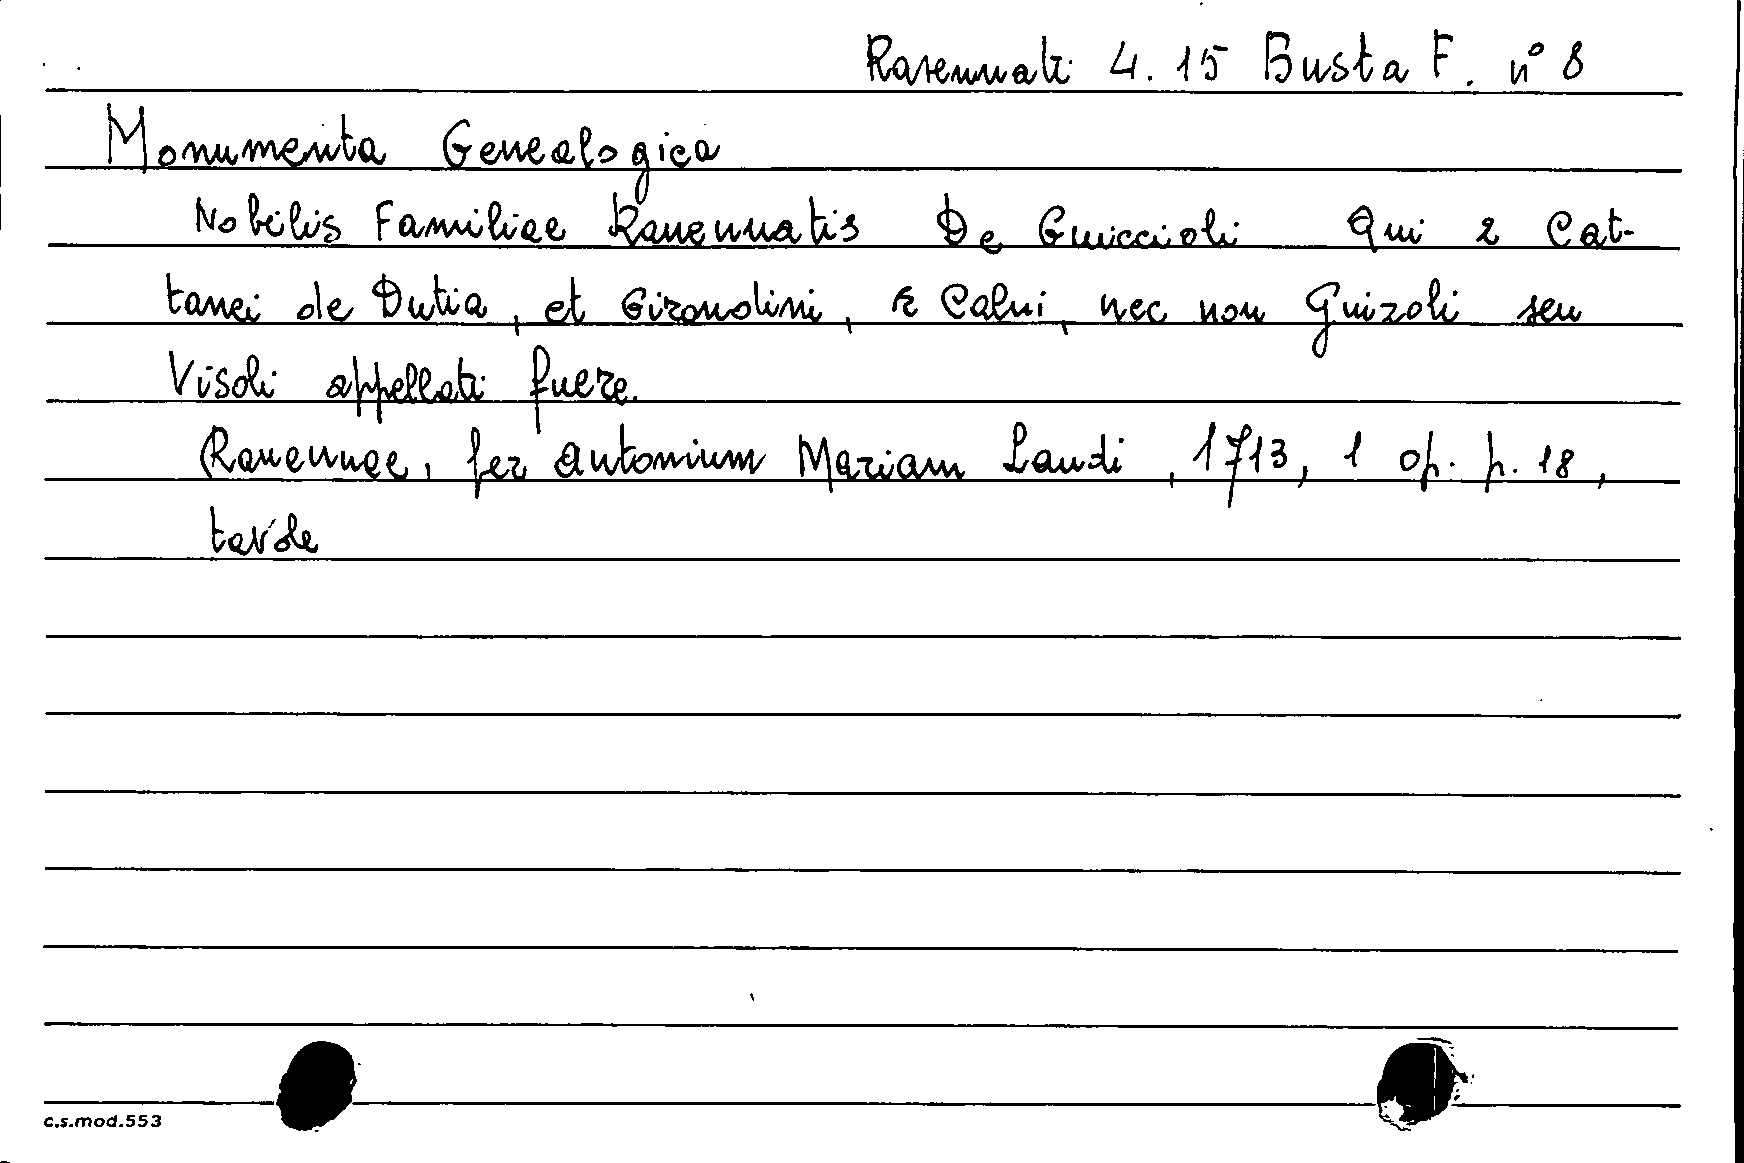 Ravennati 4. 15 Busta F. n° 8
Monumenta Genealogica
Nobilis Familiae Rauennatis De Guiccioli Qui 2 Cat-
tanei de Dutia, et Girondini, & Calui, nec non Guizoli seu
Visoli appellati fuere.
Rauennae, per Antonium Mariam Landi, 1713, 1 op. p. 18,
tavole
c.s.mod.553